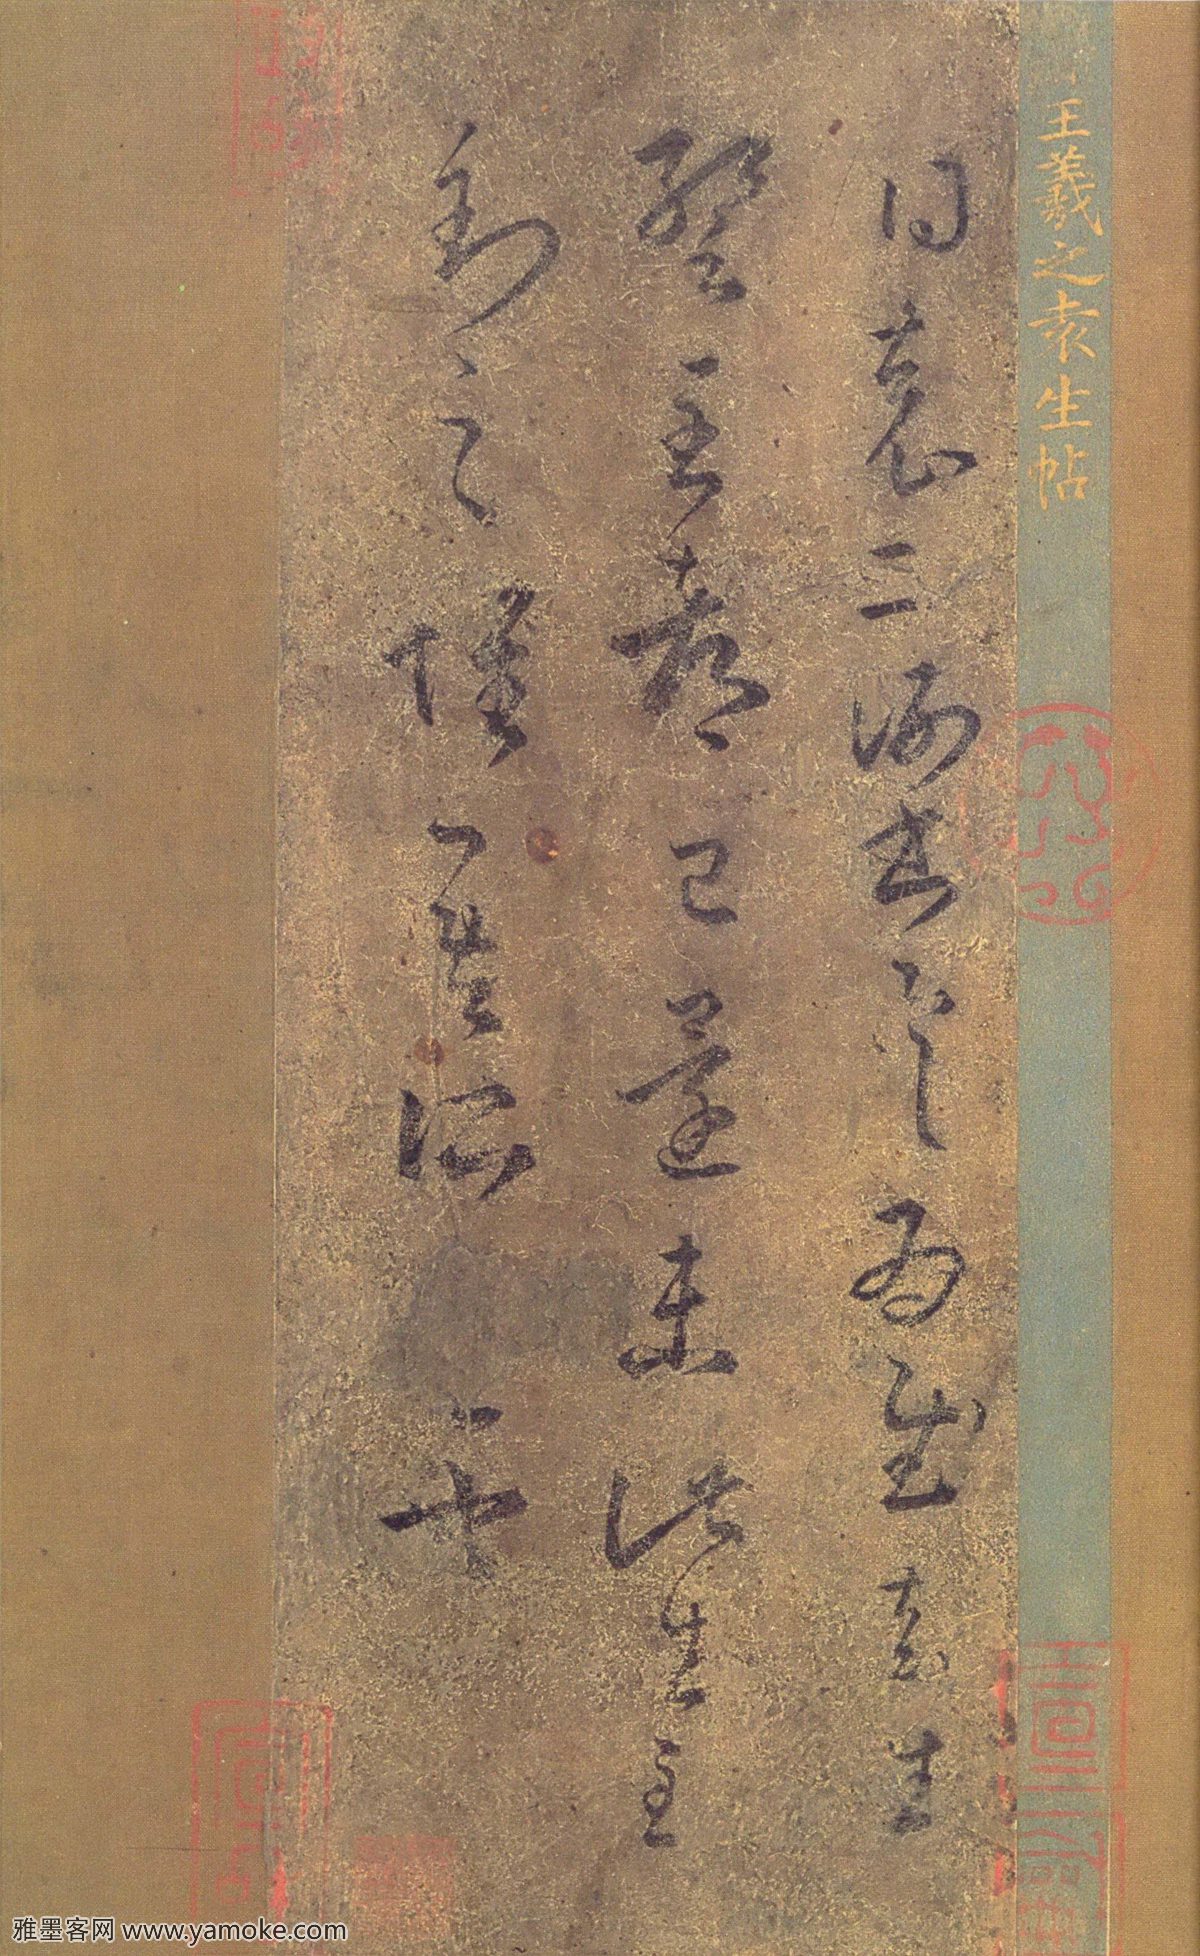 王羲之袁生帖
得袁二謝書具為慰袁生
暫至都已還未此生至
到之懷吾所盡也
雅墨客网 www.yamoke.com